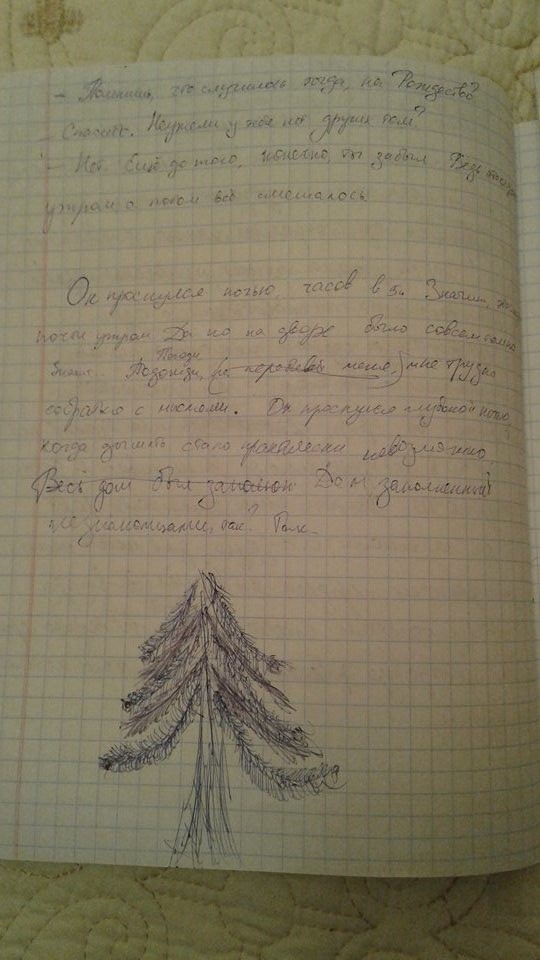 - Помнишь, что случилось тогда, на Рождество?
- Спасибо. Неужели у тебя нет других тем?
- Нет. Ещё до того, конечно, ты забыл. Ведь
утрам, а потом всё смешалось.
Он проснулся ночью часов в 5ть. Значит,
почти утром. Да но на дворе было совсем
Погоди
Подожди, (не перебивай меня,) мне трудно
собраться с мыслями. Он проснулся глубокой ночью,
когда дышать стало практически невозможно.
Весь дом был заполнен Дом, заполненный
незнакомцами, так? Так.